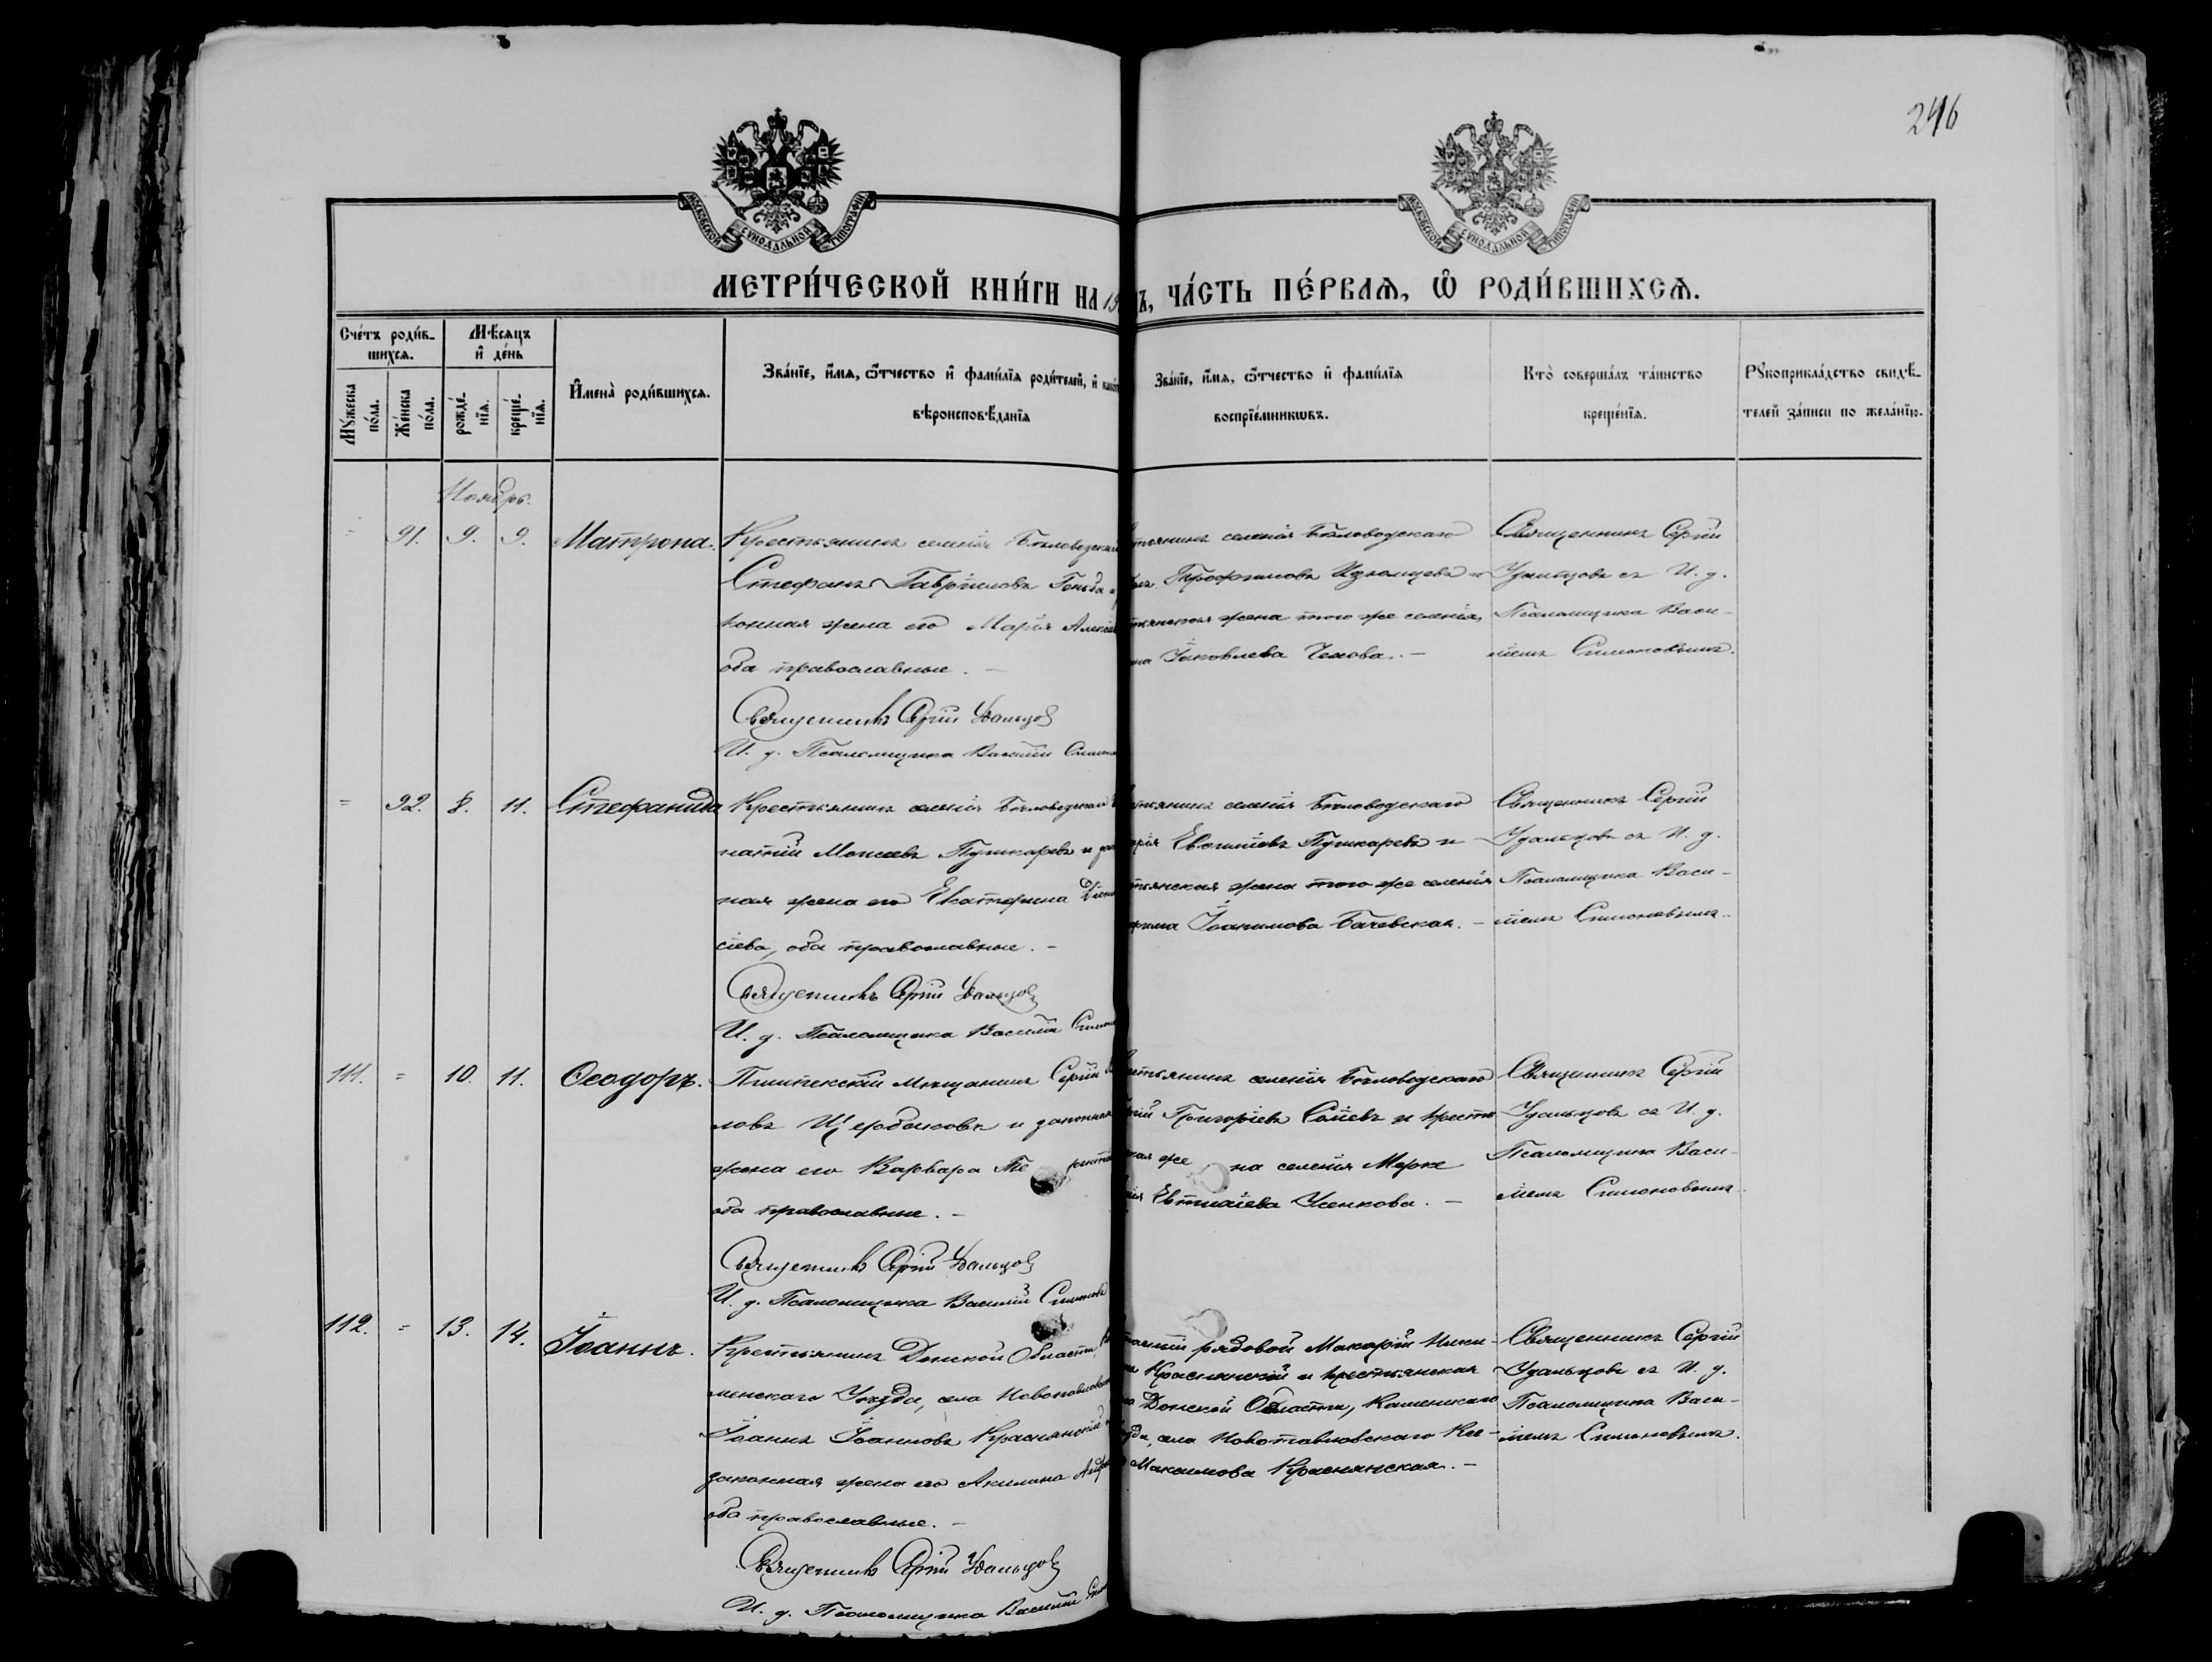 246
МОСКОВСКОЙ СѴНОДАЛЬНОЙ ТИПОГРАФІИ
МОСКОВСКОЙ СѴНОДАЛЬНОЙ ТИПОГРАФІИ
МЕТРИ́ЧЕСКОЙ КНИ́ГИ НА 19
Ъ, ЧА́СТЬ ПЕ́РВАѦ, Ѡ҆ РОДИ́ВШИХСѦ.
Сче́тъ роди́в-
шихсѧ.
Мѣ́сѧцъ
и҆ де́нь
Мꙋ́жеска
по́ла.
Же́нска
по́ла.
рожде́-
нїѧ.
креще́-
нїѧ.
И҆мена̀ роди́вшихсѧ.
Зва́нїе, и҆́мѧ, ѻ҆́тчество и҆ фами́лїѧ роди́телей, и҆
вѣроисповѣ́данїѧ
Зва́нїе, и҆́мѧ, ѻ҆́тчество и҆ фами́лїѧ
воспрїе́мникѡвъ.
Кто̀ соверша́лъ та́инство
креще́нїѧ.
Рꙋкоприкла́дство свидѣ́-
телей за́писи по жела́нїю.
Ноябрь.
= 91. 9. 9. Матрона.
Крестьянинъ селенія Бѣловодскаго
Стефанъ Гавріиловъ
жена его Марія
оба православные. —
Священникъ Сергій Удальцовъ
И. д. Псаломщика Василій
селенія Бѣловодскаго
Трофимовъ Изюмцевъ и
жена того же селенія,
Іаковлева Чехова. —
Священникъ Сергій
Удальцовъ съ И. д.
Псаломщика Васи-
ліемъ Симоновымъ.
= 92. 8. 11. Стефанида
Крестьянинъ селенія Бѣловодскаго
натій Моисеевъ Пушкаревъ и
ная жена его Екатерина
сіева, оба православные. —
Священникъ Сергій Удальцовъ
И. д. Псаломщика Василій
селенія Бѣловодскаго
Евсигніевъ Пушкаревъ и
жена того же селенія
Іоакимова Бачевская. —
Священникъ Сергій
Удальцовъ съ И. д.
Псаломщика Васи-
ліемъ Симоновымъ.
111. = 10. 11. Ѳеодоръ.
Пишпекскій мѣщанинъ Сергій
ловъ Щербаковъ и законная
жена его Варвара
оба православные. —
Священникъ Сергій Удальцовъ
И. д. Псаломщика Василій Симоновъ
селенія Бѣловодскаго
Григоріевъ и крестьян
же на селенія Мерке
Евтихіева Усенкова. —
Священникъ Сергій
Удальцовъ съ И. д.
Псаломщика Васи-
ліемъ Симоновымъ.
112. = 13. 14. Іоаннъ.
Крестьянинъ Донской Области,
менскаго Уѣзда, села
Іоаннъ Іоанновъ Краснянскій
законная жена его Акилина
оба православные. —
Священникъ Сергій Удальцовъ
И. д. Псаломщика Василій
рядовой Макарій Ники-
Краснянскій и крестьянская
Донской Области, Каменскаго
села Новопавловскаго
Максимова Краснянская. —
Священникъ Сергій
Удальцовъ съ И. д.
Псаломщика Васи-
ліемъ Симоновымъ.